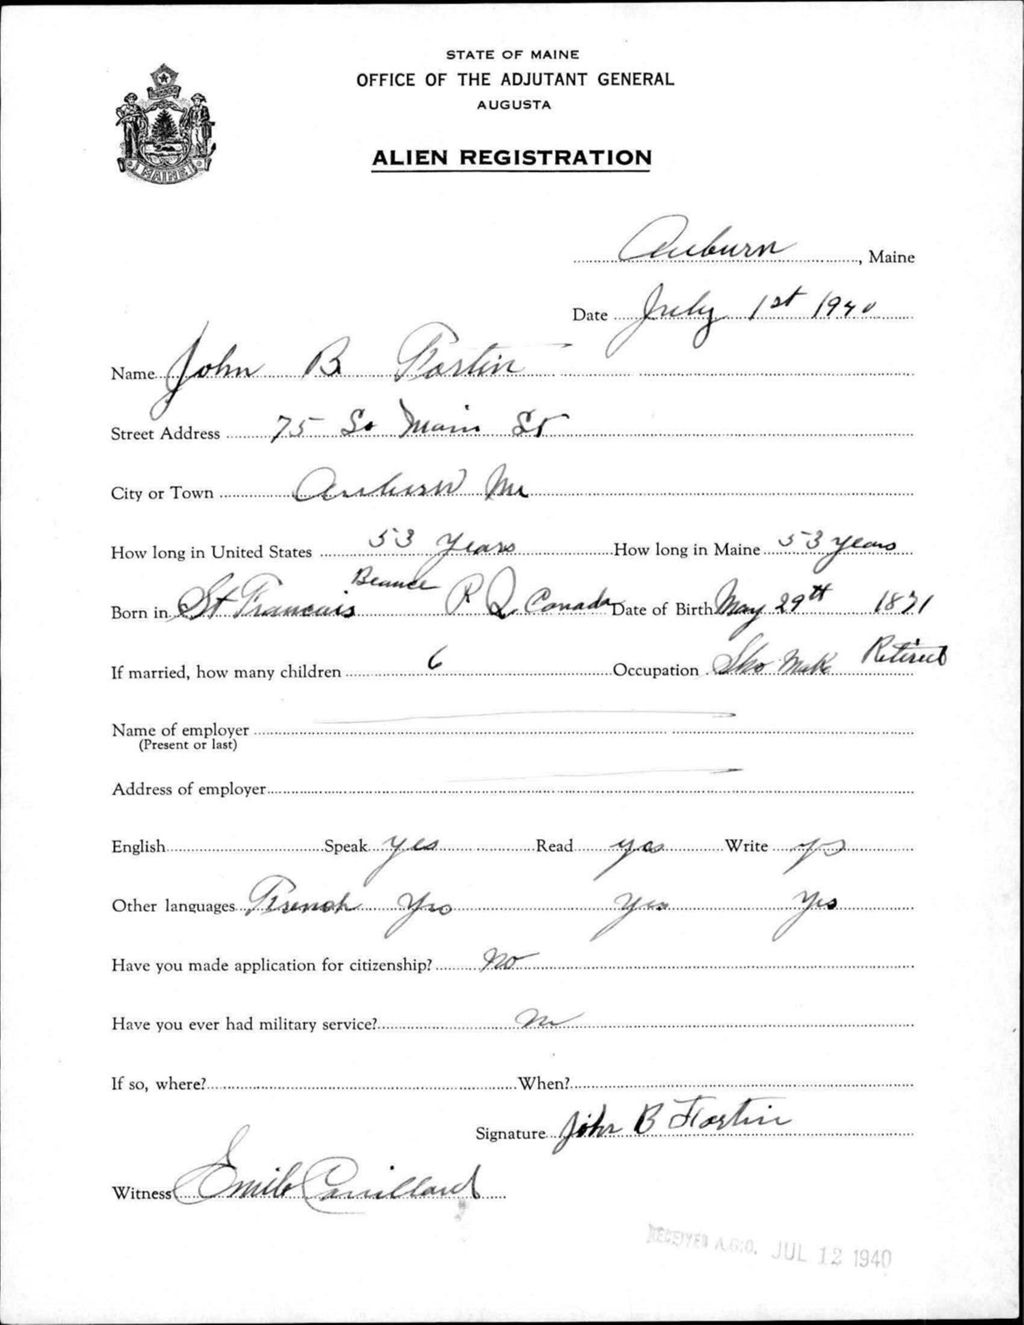 STATE OF MAINE
OFFICE OF THE ADJUTANT GENERAL
AUGUSTA
ALIEN REGISTRATION
MAINE
Auburn, Maine
Date July 1st 1940
Name John B Fortin
Street Address 75 So Main St
City or Town Auburn Me
How long in United States 53 years How long in Maine 53 years
Born in St Francais Beauce P Q Canada Date of Birth May 29th 1871
If married, how many children 6 Occupation Sho Mak Retired
Name of employer
(Present or last)
Address of employer
English Speak yes Read yes Write yes
Other languages French Yes Yes Yes
Have you made application for citizenship? No
Have you ever had military service? No
If so, where? When?
Signature John B Fortin
Witness Emile
RECEIVED A.G.O. JUL 12 1940